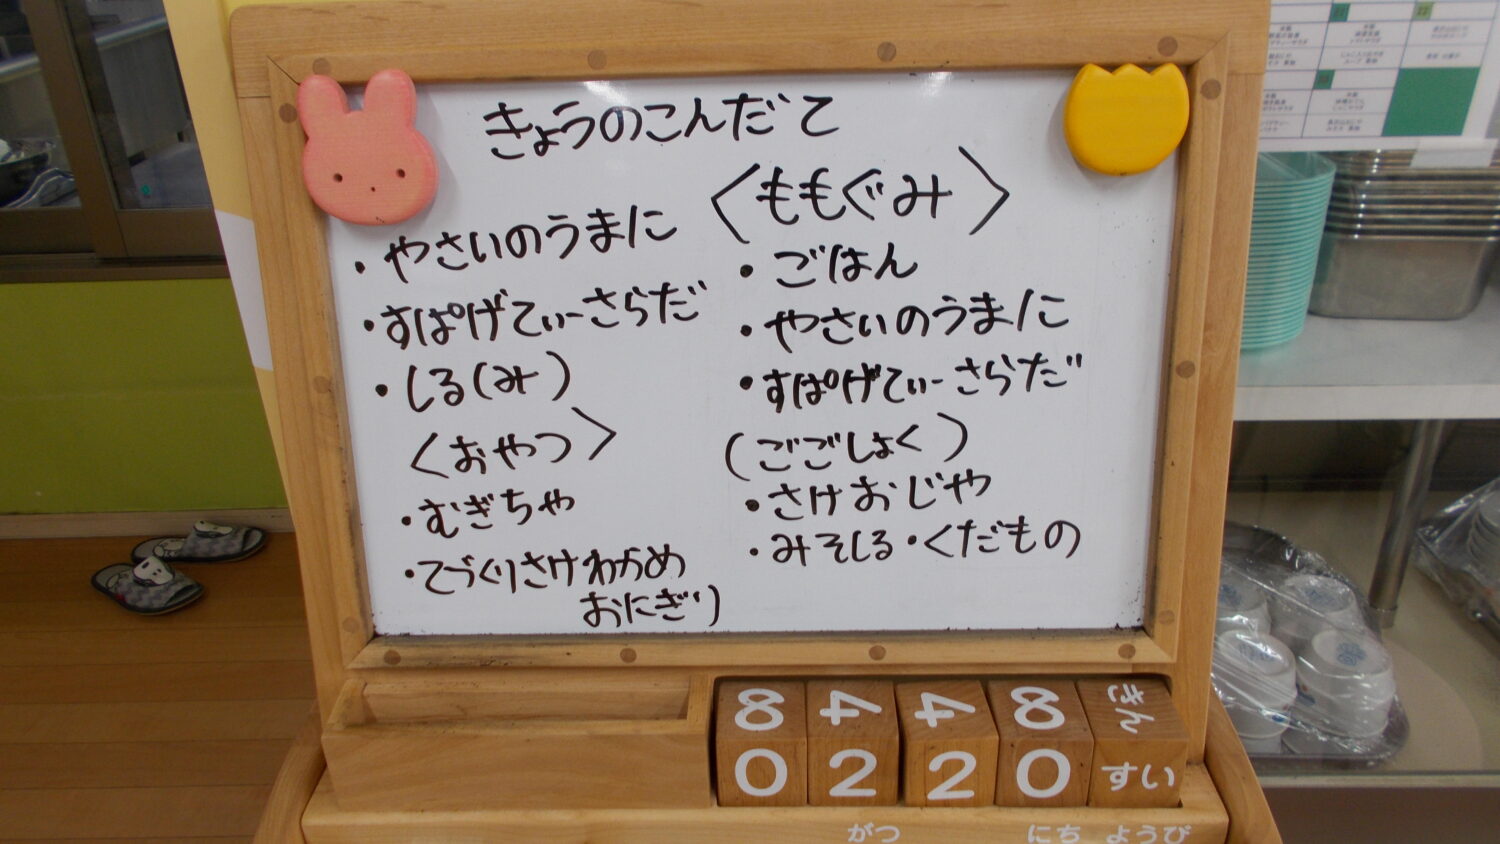 きょうのこんだて
・やさいのうまに
・すぱげてぃーさらだ
・しる(み)
〈おやつ〉
・むぎちゃ
・てづくりさけわかめ
おにぎり
〈ももぐみ〉
・ごはん
・やさいのうまに
・すぱげてぃーさらだ
(ごごしょく)
・さけおじや
・みそしる・くだもの
8 4 4 8 きん
0 2 2 0 すい
がつ にち ようび